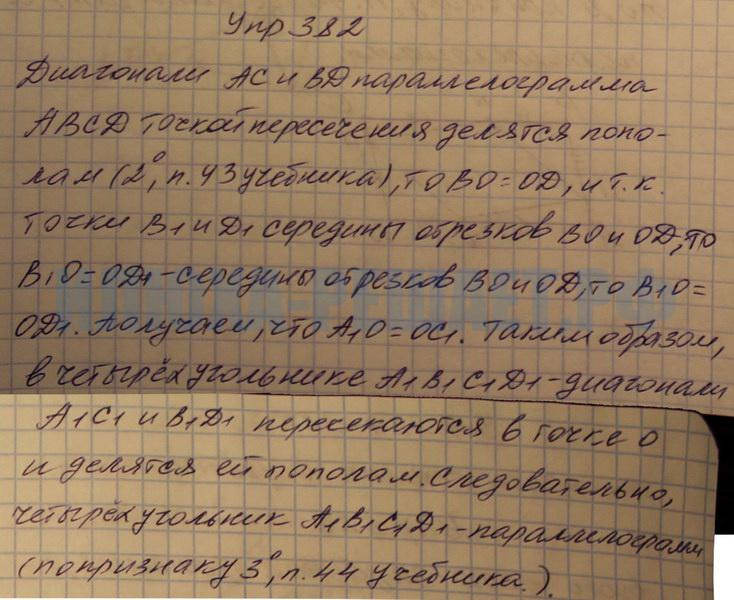 Упр 382
Диагонали AC и BD параллелограмма
ABCD точкой пересечения делятся попо-
лам (2°, п. 43 учебника), то BO=OD, и т.к.
точки B₁ и D₁ середины отрезков BO и OD, то
B₁O=OD₁-середины отрезков BO и OD, то B₁O=
OD₁. Получаем, что A₁O=OC₁. Таким образом,
в четырёхугольнике A₁B₁C₁D₁-диагонали
A₁C₁ и B₁D₁ пересекаются в точке O
и делятся ей пополам. Следовательно,
четырёхугольник A₁B₁C₁D₁-параллелограмм
(по признаку 3°, п. 44 учебника.).